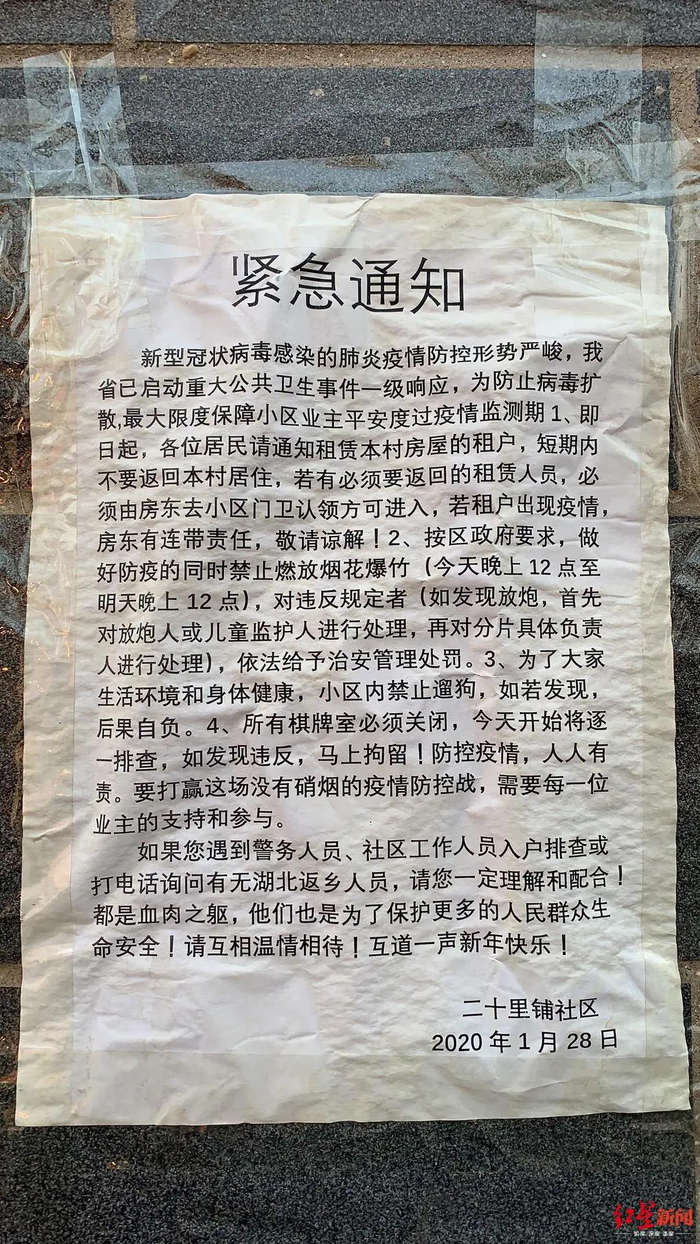 紧急通知
新型冠状病毒感染的肺炎疫情防控形势严峻，我
省已启动重大公共卫生事件一级响应，为防止病毒扩
散,最大限度保障小区业主平安度过疫情监测期 1、即
日起，各位居民请通知租赁本村房屋的租户，短期内
不要返回本村居住，若有必须要返回的租赁人员，必
须由房东去小区门卫认领方可进入，若租户出现疫情，
房东有连带责任，敬请谅解！2、按区政府要求，做
好防疫的同时禁止燃放烟花爆竹（今天晚上 12 点至
明天晚上 12 点），对违反规定者（如发现放炮，首先
对放炮人或儿童监护人进行处理，再对分片具体负责
人进行处理），依法给予治安管理处罚。3、为了大家
生活环境和身体健康，小区内禁止遛狗，如若发现，
后果自负。4、所有棋牌室必须关闭，今天开始将逐
一排查，如发现违反，马上拘留！防控疫情，人人有
责。要打赢这场没有硝烟的疫情防控战，需要每一位
业主的支持和参与。
如果您遇到警务人员、社区工作人员入户排查或
打电话询问有无湖北返乡人员，请您一定理解和配合！
都是血肉之躯，他们也是为了保护更多的人民群众生
命安全！请互相温情相待！互道一声新年快乐！
二十里铺社区
2020 年 1 月 28 日
红星新闻